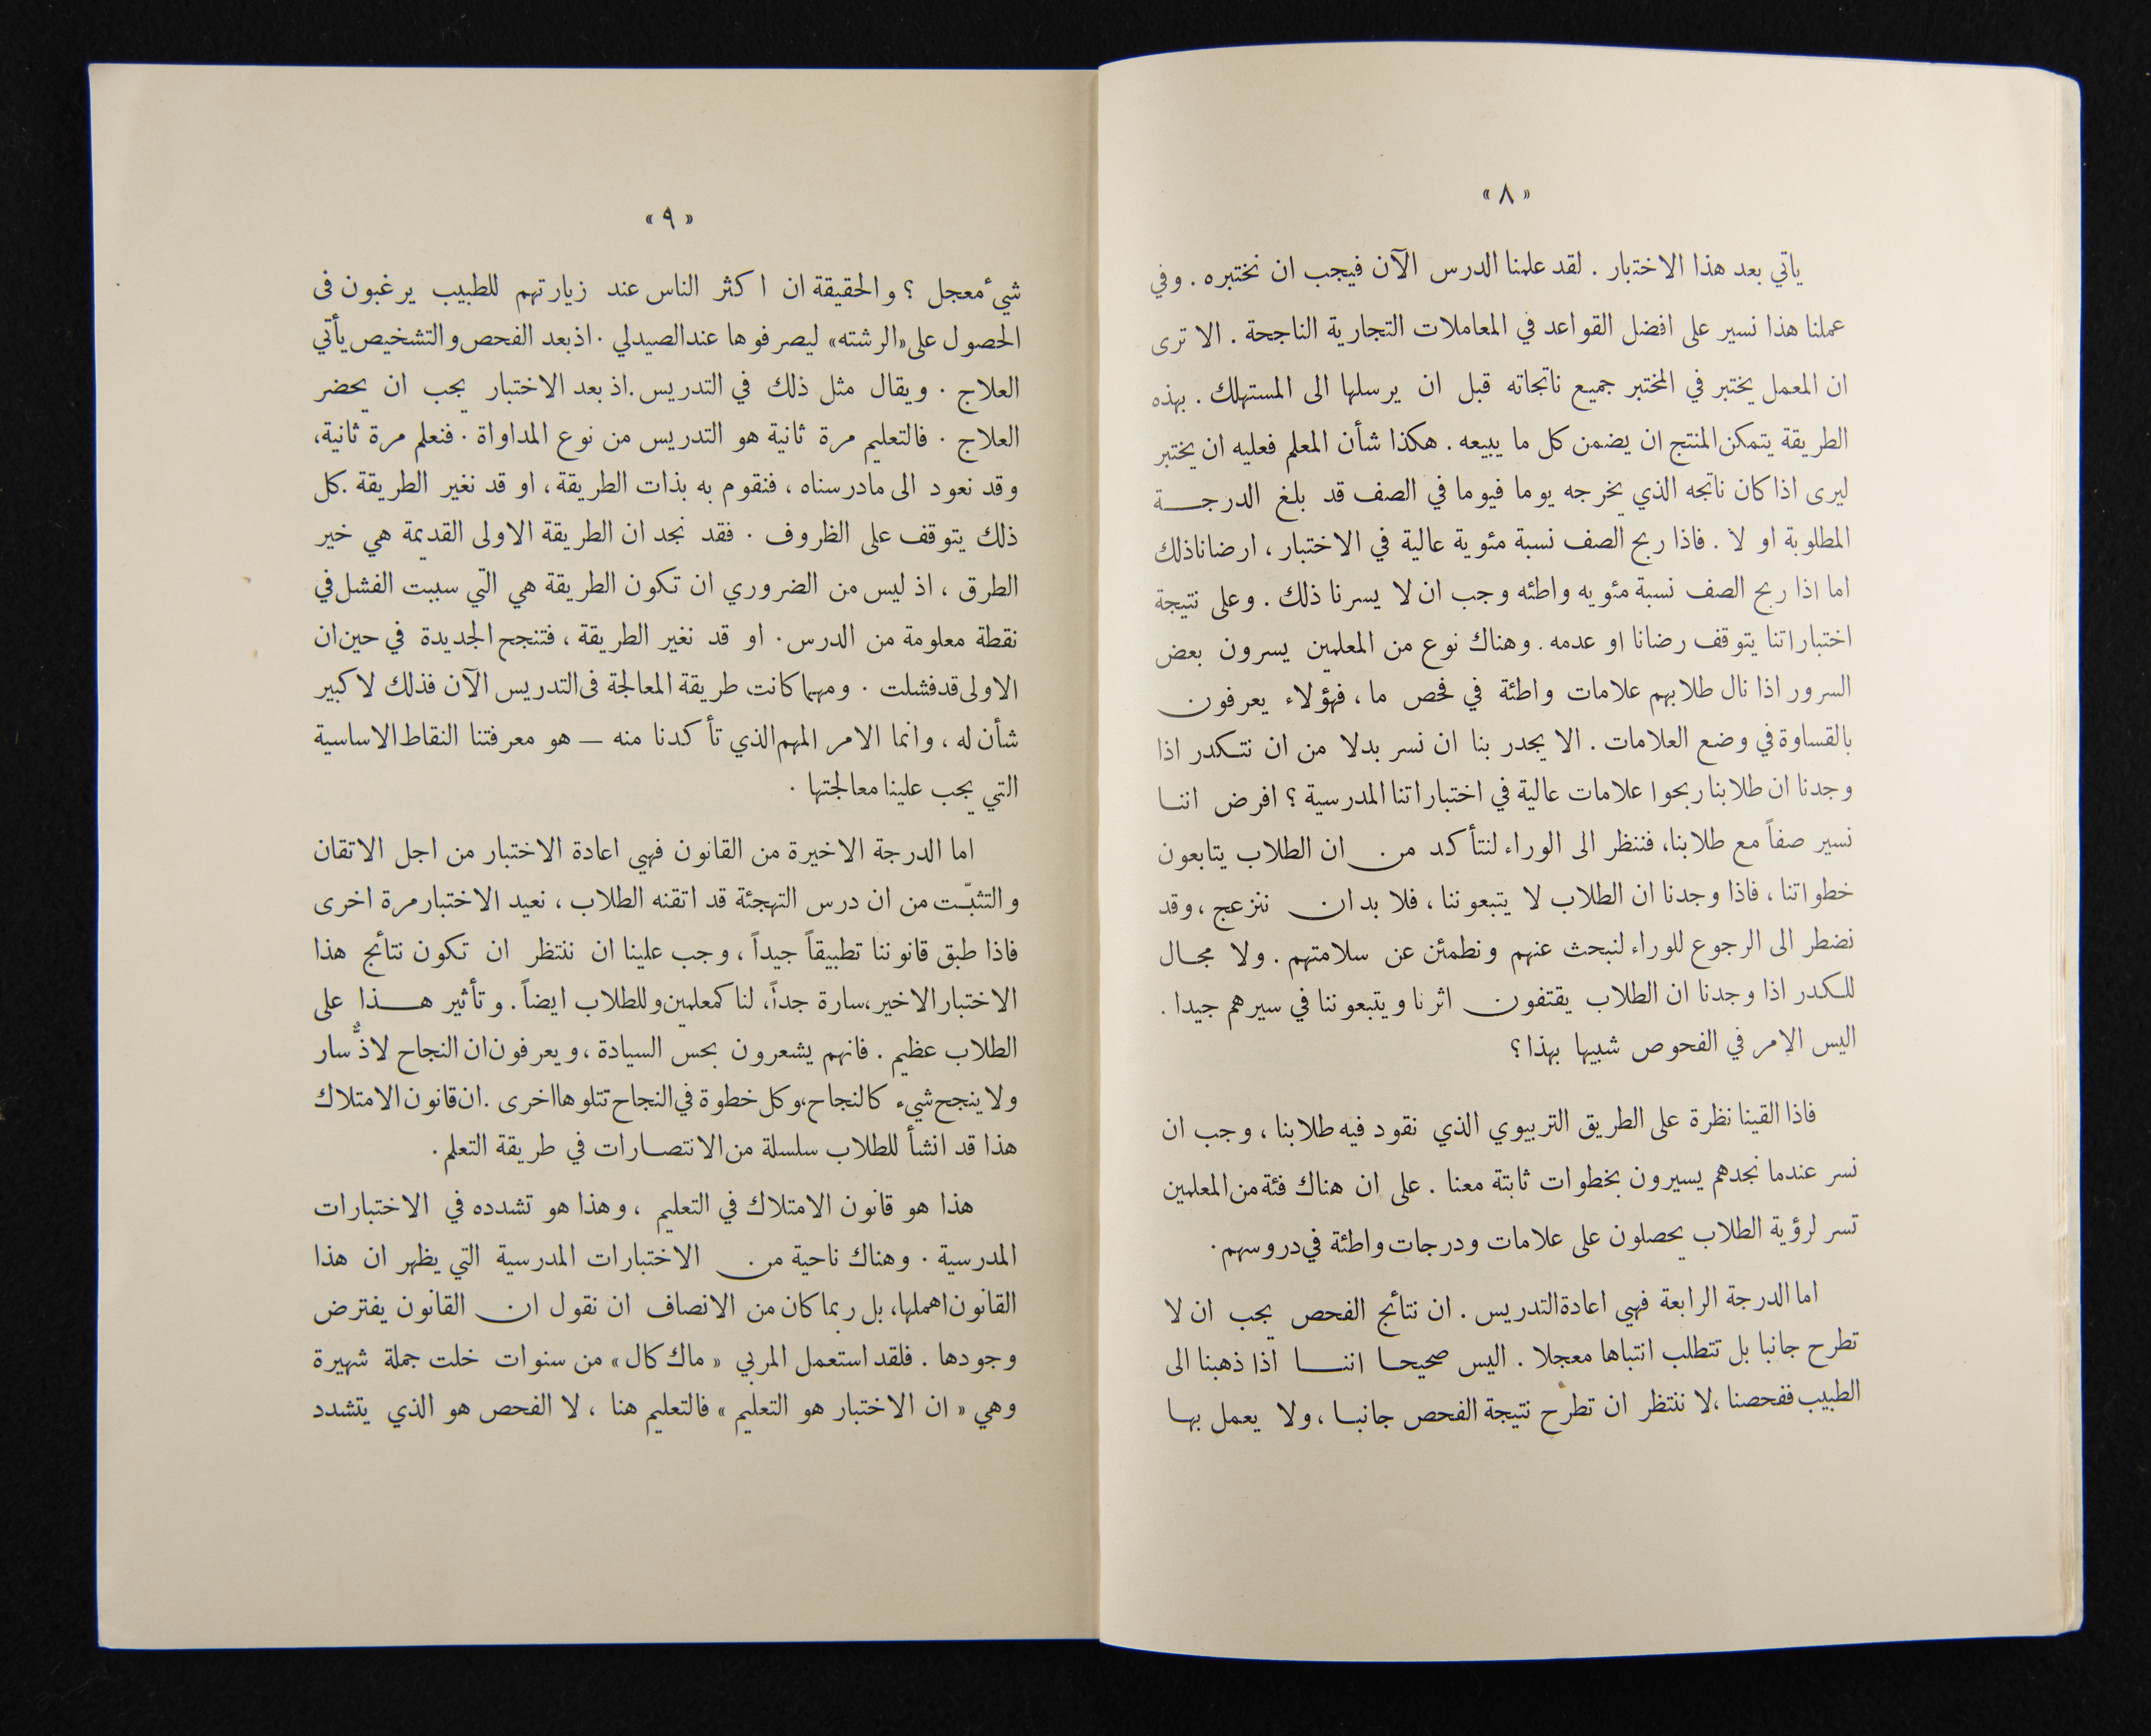 « ٨ »
ياتي بعد هذا الاختبار . لقد علمنا الدرس الآن فيجب ان نختبره . وفي
عملنا هذا نسير على افضل القواعد في المعاملات التجارية الناجحة . الا ترى
ان المعمل يختبر في المختبر جميع ناتجاته قبل ان يرسلها الى المستهلك . بهذه
الطريقة يتمكن المنتج ان يضمن كل ما يبيعه . هكذا شأن المعلم فعليه ان يختبر
ليرى اذا كان ناتجه الذي يخرجه يوما فيوما في الصف قد بلغ الدرجـــة
المطلوبة او لا . فاذا ربح الصف نسبة مئوية عالية في الاختبار ، ارضانا ذلك
اما اذا ربح الصف نسبة مئويه واطئه وجب ان لا يسرنا ذلك . وعلى نتيجة
اختباراتنا يتوقف رضانا او عدمه . وهناك نوع من المعلمين يسرون بعض
السرور اذا نال طلابهم علامات واطئة في فحص ما ، فهؤلاء يعرفون
بالقساوة في وضع العلامات . الا يجدر بنا ان نسر بدلا من ان نتكدر اذا
وجدنا ان طلابنا ربحوا علامات عالية في اختباراتنا المدرسية ؟ افرض اننـا
نسير صفاً مع طلابنا، فننظر الى الوراء لنتأكد من ان الطلاب يتابعون
خطواتنا ، فاذا وجدنا ان الطلاب لا يتبعوننا ، فلا بد ان ننزعج ، وقد
نضطر الى الرجوع للوراء لنبحث عنهم ونطمئن عن سلامتهم . ولا مجـال
للكدر اذا وجدنا ان الطلاب يقتفون اثرنا ويتبعوننا في سيرهم جيدا .
اليس الامر في الفحوص شبيها بهذا ؟
فاذا القينا نظرة على الطريق التربيوي الذي نقود فيه طلابنا ، وجب ان
نسر عندما نجدهم يسيرون بخطوات ثابتة معنا . على ان هناك فئة من المعلمين
تسر لرؤية الطلاب يحصلون على علامات ودرجات واطئة في دروسهم .
اما الدرجة الرابعة فهي اعادة التدريس . ان نتائج الفحص يجب ان لا
تطرح جانبا بل تتطلب انتباها معجلا . اليس صحيحـا اننـــا اذا ذهبنا الى
الطبيب ففحصنا ، لا ننتظر ان تطرح نتيجة الفحص جانبـا ، ولا يعمل بهـا
« ٩ »
شيءٌ معجل ؟ والحقيقة ان اكثر الناس عند زيارتهم للطبيب يرغبون في
الحصول على «الرشته» ليصرفوها عند الصيدلي . اذ بعد الفحص والتشخيص يأتي
العلاج . ويقال مثل ذلك في التدريس . اذ بعد الاختبار يجب ان يحضر
العلاج . فالتعليم مرة ثانية هو التدريس من نوع المداواة . فنعلم مرة ثانية،
وقد نعود الى مادرسناه ، فنقوم به بذات الطريقة ، او قد نغير الطريقة . كل
ذلك يتوقف على الظروف . فقد نجد ان الطريقة الاولى القديمة هي خير
الطرق ، اذ ليس من الضروري ان تكون الطريقة هي التي سببت الفشل في
نقطة معلومة من الدرس . او قد نغير الطريقة ، فتنجح الجديدة في حين ان
الاولى قد فشلت . ومهما كانت طريقة المعالجة في التدريس الآن فذلك لا كبير
شأن له ، وانما الامر المهم الذي تأكدنا منه — هو معرفتنا النقاط الاساسية
التي يجب علينا معالجتها .
اما الدرجة الاخيرة من القانون فهي اعادة الاختبار من اجل الاتقان
والتثبّت من ان درس التهجئة قد اتقنه الطلاب ، نعيد الاختبار مرة اخرى
فاذا طبق قانوننا تطبيقاً جيداً ، وجب علينا ان ننتظر ان تكون نتائج هذا
الاختبار الاخير، سارة جداً، لنا كمعلمين وللطلاب ايضاً . وتأثير هـــذا على
الطلاب عظيم . فانهم يشعرون بحس السيادة ، ويعرفون ان النجاح لاذٌّ سار
ولا ينجح شيء كالنجاح، وكل خطوة في النجاح تتلوها اخرى . ان قانون الامتلاك
هذا قد انشأ للطلاب سلسلة من الانتصـارات في طريقة التعلم .
هذا هو قانون الامتلاك في التعليم ، وهذا هو تشدده في الاختبارات
المدرسية . وهناك ناحية من الاختبارات المدرسية التي يظهر ان هذا
القانون اهملها، بل ربما كان من الانصاف ان نقول ان القانون يفترض
وجودها . فلقد استعمل المربي « ماك كال » من سنوات خلت جملة شهيرة
وهي « ان الاختبار هو التعليم » فالتعليم هنا ، لا الفحص هو الذي يتشدد